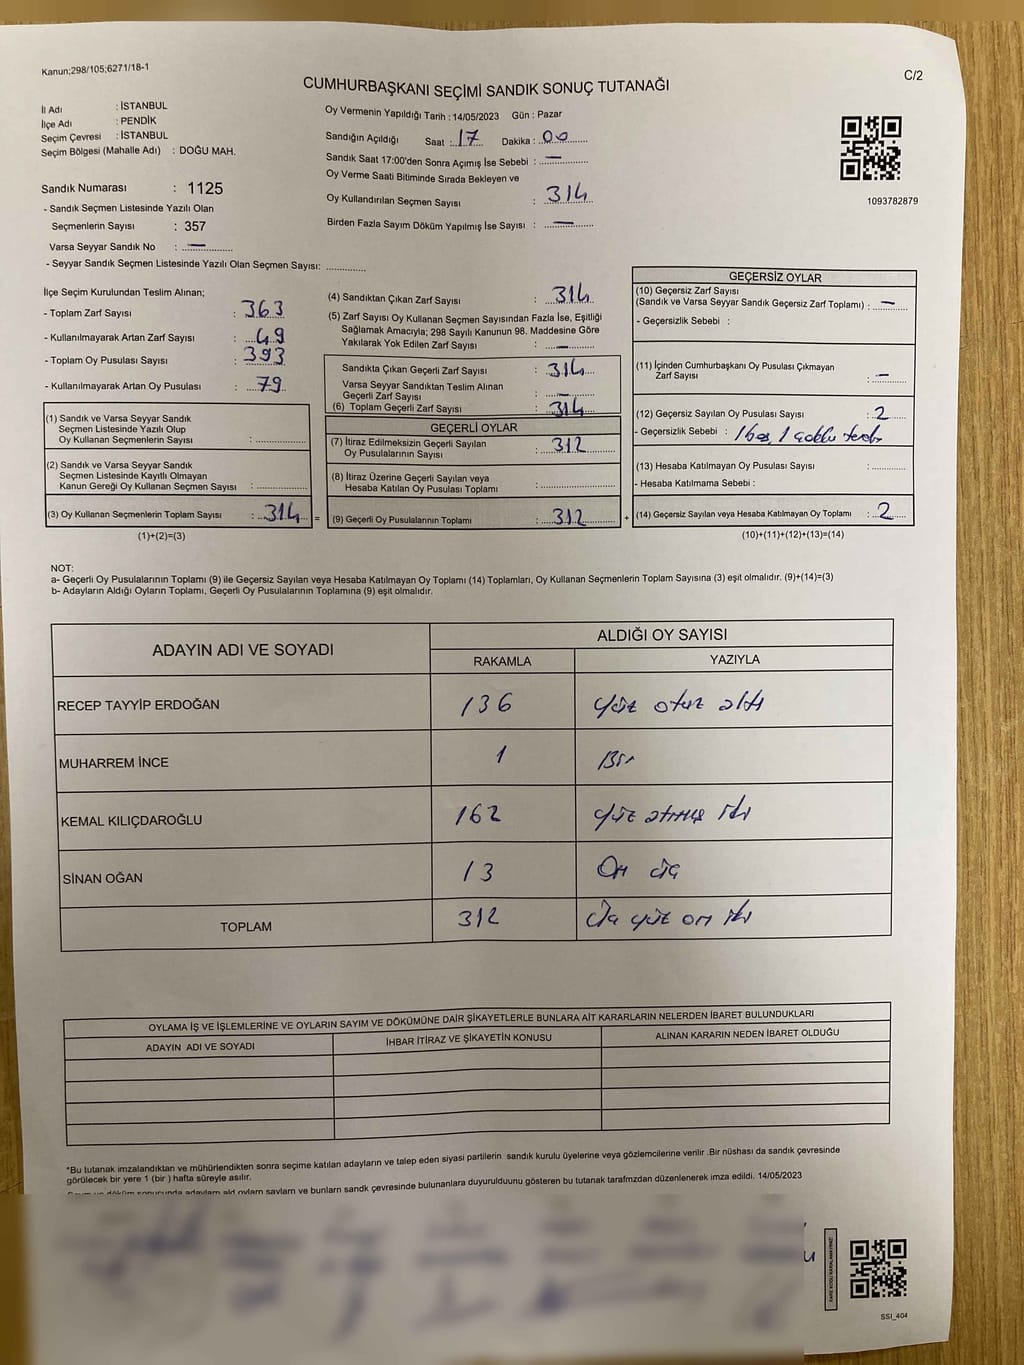 Kanun;298/105;6271/18-1
C/2
CUMHURBAŞKANI SEÇİMİ SANDIK SONUÇ TUTANAĞI
İl Adı : İSTANBUL
İlçe Adı : PENDİK
Seçim Çevresi : İSTANBUL
Seçim Bölgesi (Mahalle Adı) : DOĞU MAH.
Sandık Numarası : 1125
- Sandık Seçmen Listesinde Yazılı Olan
Seçmenlerin Sayısı : 357
Varsa Seyyar Sandık No : —
- Seyyar Sandık Seçmen Listesinde Yazılı Olan Seçmen Sayısı: ..............
Oy Vermenin Yapıldığı Tarih : 14/05/2023 Gün : Pazar
Sandığın Açıldığı Saat : 17 Dakika : 00
Sandık Saat 17:00'den Sonra Açımış İse Sebebi : —
Oy Verme Saati Bitiminde Sırada Bekleyen ve
Oy Kullandırılan Seçmen Sayısı : 314
Birden Fazla Sayım Döküm Yapılmış İse Sayısı : —
1093782879
İlçe Seçim Kurulundan Teslim Alınan;
- Toplam Zarf Sayısı : 363
- Kullanılmayarak Artan Zarf Sayısı : 49
- Toplam Oy Pusulası Sayısı : 393
- Kullanılmayarak Artan Oy Pusulası : 79
(1) Sandık ve Varsa Seyyar Sandık
Seçmen Listesinde Yazılı Olup
Oy Kullanan Seçmenlerin Sayısı : ..............
(2) Sandık ve Varsa Seyyar Sandık
Seçmen Listesinde Kayıtlı Olmayan
Kanun Gereği Oy Kullanan Seçmen Sayısı : ..............
(3) Oy Kullanan Seçmenlerin Toplam Sayısı : 314 =
(1)+(2)=(3)
(4) Sandıktan Çıkan Zarf Sayısı : 314
(5) Zarf Sayısı Oy Kullanan Seçmen Sayısından Fazla İse, Eşitliği
Sağlamak Amacıyla; 298 Sayılı Kanunun 98. Maddesine Göre
Yakılarak Yok Edilen Zarf Sayısı : —
Sandıkta Çıkan Geçerli Zarf Sayısı : 314
Varsa Seyyar Sandıktan Teslim Alınan
Geçerli Zarf Sayısı : —
(6) Toplam Geçerli Zarf Sayısı : 314
GEÇERLİ OYLAR
(7) İtiraz Edilmeksizin Geçerli Sayılan
Oy Pusulalarının Sayısı : 312
(8) İtiraz Üzerine Geçerli Sayılan veya
Hesaba Katılan Oy Pusulası Toplamı : ..............
(9) Geçerli Oy Pusulalarının Toplamı : 312 +
GEÇERSİZ OYLAR
(10) Geçersiz Zarf Sayısı
(Sandık ve Varsa Seyyar Sandık Geçersiz Zarf Toplamı) : —
- Geçersizlik Sebebi :
(11) İçinden Cumhurbaşkanı Oy Pusulası Çıkmayan
Zarf Sayısı : —
(12) Geçersiz Sayılan Oy Pusulası Sayısı : 2
- Geçersizlik Sebebi : 1 boş, 1
(13) Hesaba Katılmayan Oy Pusulası Sayısı : ..............
- Hesaba Katılmama Sebebi :
(14) Geçersiz Sayılan veya Hesaba Katılmayan Oy Toplamı : 2
(10)+(11)+(12)+(13)=(14)
NOT:
a- Geçerli Oy Pusulalarının Toplamı (9) ile Geçersiz Sayılan veya Hesaba Katılmayan Oy Toplamı (14) Toplamları, Oy Kullanan Seçmenlerin Toplam Sayısına (3) eşit olmalıdır. (9)+(14)=(3)
b- Adayların Aldığı Oyların Toplamı, Geçerli Oy Pusulalarının Toplamına (9) eşit olmalıdır.
ADAYIN ADI VE SOYADI
ALDIĞI OY SAYISI
RAKAMLA YAZIYLA
RECEP TAYYİP ERDOĞAN 136 Yüz otuz altı
MUHARREM İNCE 1 Bir
KEMAL KILIÇDAROĞLU 162 Yüz atmış iki
SİNAN OĞAN 13 On üç
TOPLAM 312 Üç yüz on iki
OYLAMA İŞ VE İŞLEMLERİNE VE OYLARIN SAYIM VE DÖKÜMÜNE DAİR ŞİKAYETLERLE BUNLARA AİT KARARLARIN NELERDEN İBARET BULUNDUKLARI
ADAYIN ADI VE SOYADI
İHBAR İTİRAZ VE ŞİKAYETİN KONUSU
ALINAN KARARIN NEDEN İBARET OLDUĞU
*Bu tutanak imzalandıktan ve mühürlendikten sonra seçime katılan adayların ve talep eden siyasi partilerin sandık kurulu üyelerine veya gözlemcilerine verilir .Bir nüshası da sandık çevresinde
görülecek bir yere 1 (bir ) hafta süreyle asılır.
bulunanlara duyurulduunu gösteren bu tutanak tarafmzdan düzenlenerek imza edildi. 14/05/2023
SSI_404